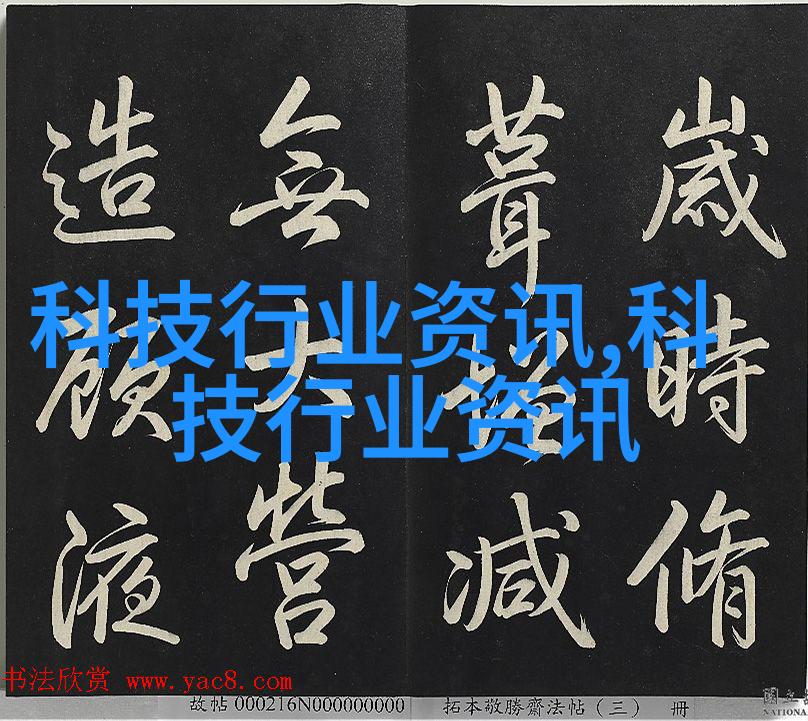 歲時脩
葺減
無大營
造顧液
科技行业资讯,科
技行业资讯
书法欣赏 www.yac8.com
故帖 000216N000000000 拓本敬勝齋法帖（三） 冊
國立
NATIONA